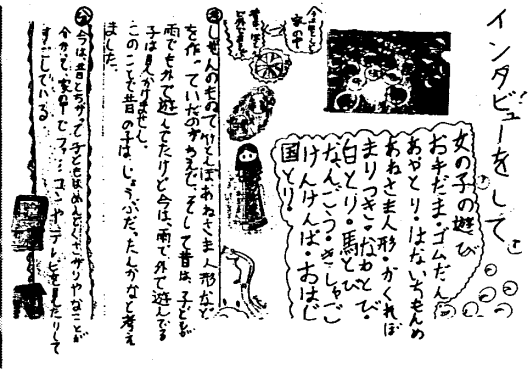 インタビューをして
女の子の遊び
おきだま・ゴムだん
あやとり・はないちもんめ
あねさま人形・かくれぼ
まりつき・なわとび・
白とり・馬とび
なんごつう・きしゃご
けんけんぱ・おはじ
国とり・
今の子ども
家の中
昔の子ども
しぜんのもので竹とんぼあねさま人形など
を作っていたのが分かった。そして昔は、子どもが
雨でも外で遊んでたけど今は、雨で外で遊んでる
子は見かけません。
このことで昔の子は、じょうぶだったんかなと考え
ました。
今は昔とちがって子どもはめんどくさがりやなことが
分かって家の中でファミコンやテレビを見たりして
すごしている。